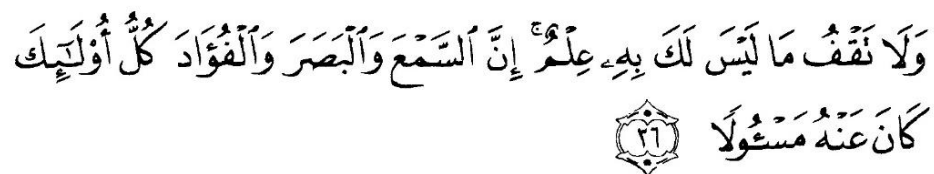 وَلَا نَقْفُ مَا لَيْسَ لَكَ بِهِۦ عِلْمٌ ۚ إِنَّ ٱلسَّمْعَ وَٱلْبَصَرَ وَٱلْفُؤَادَ كُلُّ أُو۟لَـٰٓئِكَ
كَانَ عَنْهُ مَسْـُٔولًا ٣٦